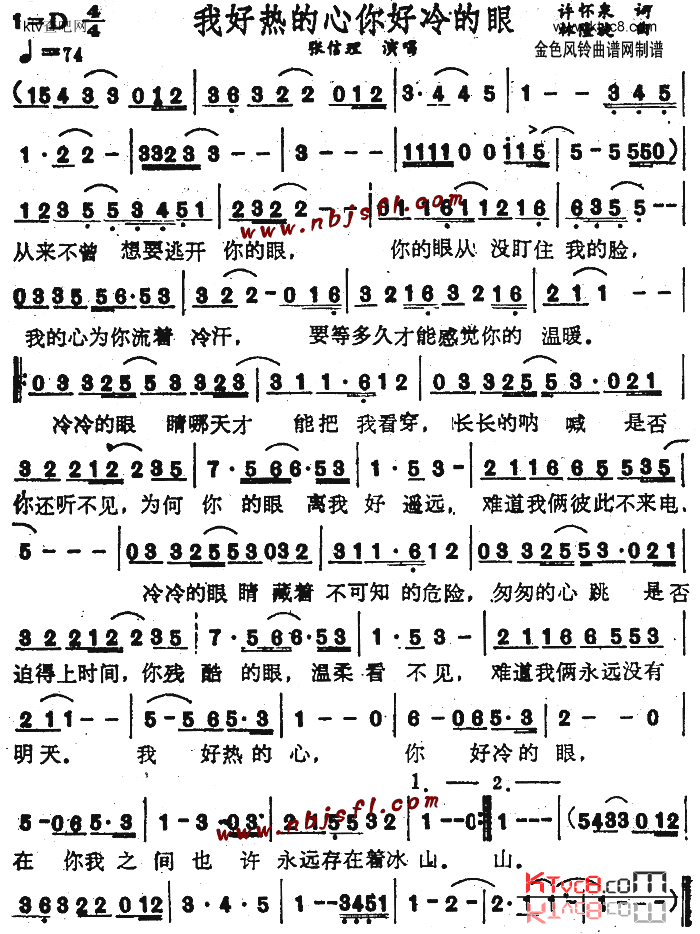 1=D 4/4 我好热的心你好冷的眼 许怀泉 词
♩=74 张信理 演唱 曲
金色风铃曲谱网制谱
(15433012 | 36322012 | 3·445 | 1--345
1·22- | 333233- | 3--- | 111100i15 | 5-5550)
123553451 | 2322- | 0116111216 | 6355--
www.nbjsfl.com
从来不曾 想要逃开 你的眼, 你的眼从 没盯住 我的脸,
033556·53 | 322-016 | 32163216 | 211--
我的心为你流着 冷汗, 要等多久才能感觉你的 温暖。
0332553323 | 311·612 | 0332553·021
冷冷的眼 睛哪天才 能把 我看穿, 长长的呐 喊 是否
322112235 | 7·5665·53 | 1·53- | 2116655535
你还听不见,为何 你 的眼 离我 好 遥远, 难道我俩彼此不来电,
5--- | 03325553032 | 311·612 | 0332553·021
冷冷的眼 睛 藏着 不可知 的危险, 匆匆的心 跳 是否
322112235 | 7·5665·53 | 1·53- | 211665553
迫得上时间,你残 酷 的眼, 温柔 看 不见, 难道我俩永远没有
211-- | 5-565·3 | 1--0 | 6-065·3 | 2--0
明天。 我 好热的 心, 你 好冷的 眼,
1.—— 2.——
www.nbjsfl.com
5-065·3 | 1-3-03· | 2·25532 | 1--0 :| 1--- | (5433012
在 你我 之 间 也 许 永远存在着冰 山。 山。
36322012 | 3·4·5 | 1--3451 | 1-2- | 2·11-- | 1---)
KTVC8.com